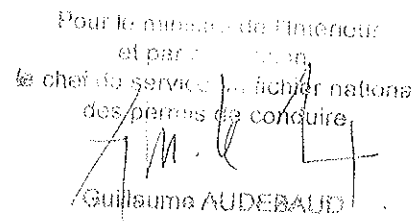 Pour le ministre de l'Intérieur
et par
le chef du service du fichier national
des permis de conduire
Guillaume AUDEBAUD